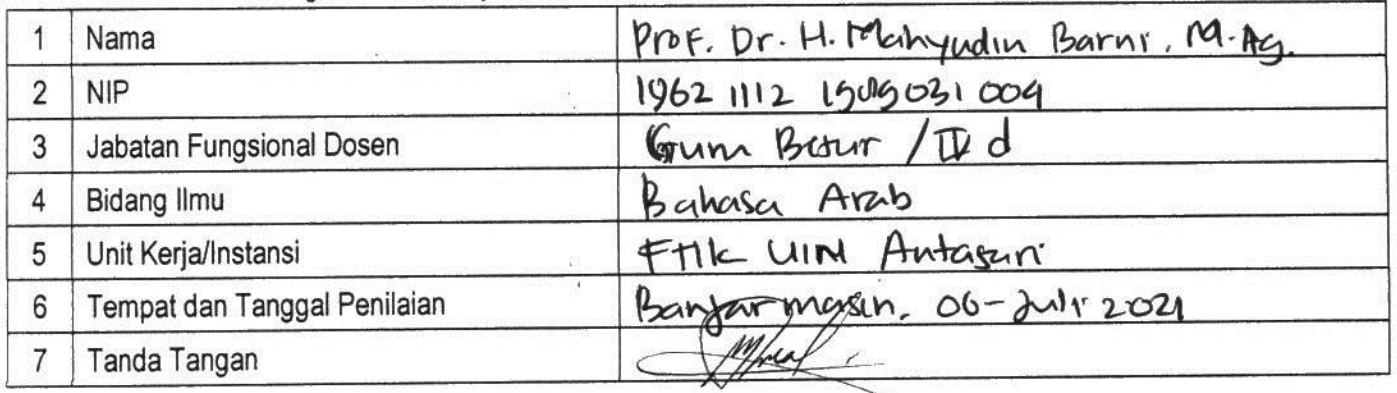 1 Nama Prof. Dr. H. Mahyudin Barni, M.Ag.
2 NIP 1962 1112 1989031 004
3 Jabatan Fungsional Dosen Guru Besar / IV d
4 Bidang Ilmu Bahasa Arab
5 Unit Kerja/Instansi FTIK UIN Antasari
6 Tempat dan Tanggal Penilaian Banjarmasin, 06-Juli 2021
7 Tanda Tangan